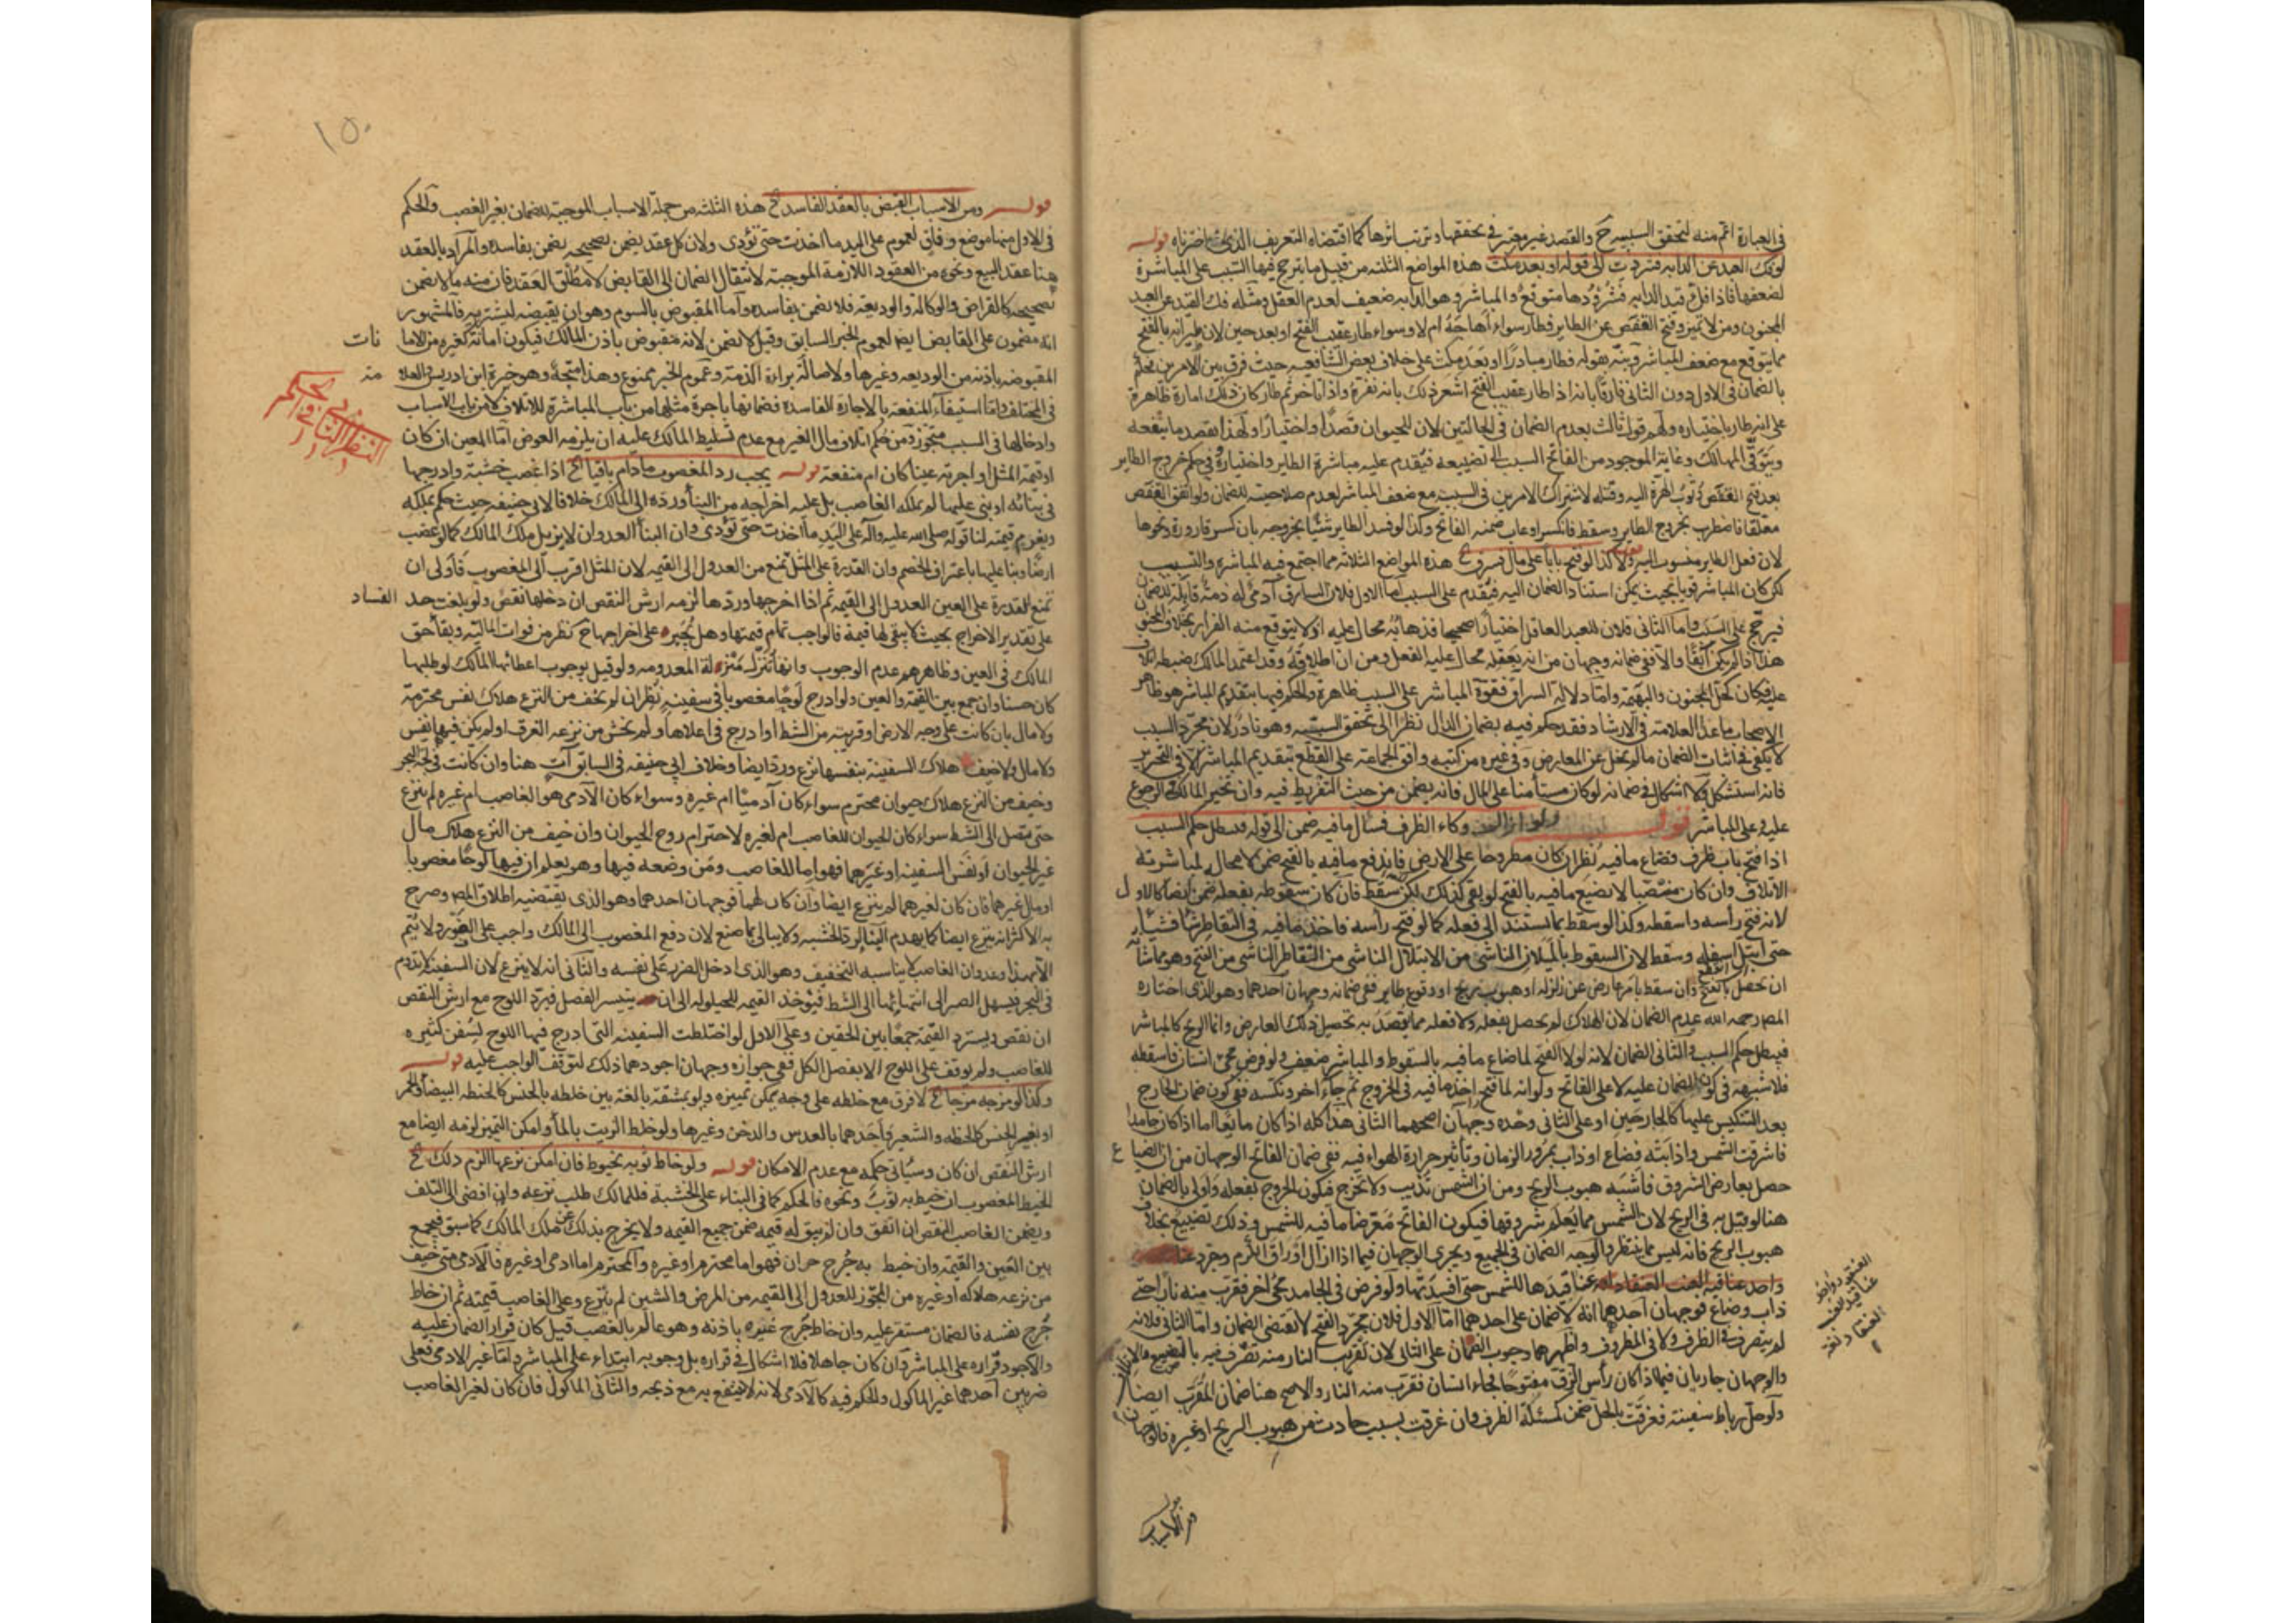 في العبارة اعم منه لتحقق السببيه ح والقصد غير معتبر في تحققها وترتب اثرها كما اقتضاه التعريف الذي اخترناه قوله
لو فك القيد عن الدابه فشردت الى قوله او بعد مكث هذه المواضع الثلثه من قبيل ما يترجح فيها السبب على المباشرة
لضعفها فاذا فك قيد الدابه فشرودها متوقع والمباشر وهو الدابه ضعيف لعدم العقل ومثله فك القيد عن العبد
المجنون ومن لا تميز وفتح القفص عن الطاير فطار سواء اهاجه ام لا وسواء طار عقيب الفتح او بعد حين لان طيرانه بالفتح
مما يتوقع مع ضعف المباشر ونبه بقوله فطار مبادرا او بعد مكث على خلاف بعض الشافعيه حيث فرق بين الامرين فحكم
بالضمان في الاول دون الثاني فارقا بانه اذا طار عقيب الفتح اشعر ذلك بانه نفره واذا تاخر ثم طار كان ذلك امارة ظاهرة
على انه طار باختياره ولهم قول ثالث بعدم الضمان في الحالتين لان للحيوان قصدا واختيارا ولهذا يقصد ما ينفعه
ويتوقى المهالك وغاية الموجود من الفاتح السبب الى تضييعه فيقدم عليه مباشرة الطاير واختياره وفي حكم خروج الطاير
بعد فتح القفص وثوب الهرة اليه وقتله لاشتراك الامرين في السبب مع ضعف المباشر لعدم صلاحيته للضمان ولو اتفق القفص
معلقا فاضطرب بخروج الطاير وسقط فانكسر او عاب ضمنه الفاتح وكذا لو فسد الطاير شيئا بخروجه بان كسر قارورة ونحوها
لان فعل الطاير منسوب اليه قوله ولا كذا لو فتح بابا على مال فسرق الخ هذه المواضع الثلاثه مما اجتمع فيه المباشره والتسبيب
لكن كان المباشر قويا بحيث يمكن استناد الضمان اليه فيقدم على السبب اما الاول فلان السارق آدمي له ذمة قابلة للضمان
فيرجح على السبب واما الثاني فلان للعبد العاقل اختيارا صحيحا فذهابه محال عليه اذ لا يتوقع منه الفرار بخلاف المجنون
هذا اذا لم يكن آبقا والا ففي ضمانه وجهان من انه بعقله محال عليه الفعل ومن ان اطلاقه وقد اعتمد المالك ضبطه اتلاف
عليه فكان كحل المجنون والبهيمة واما دلالة السراق فقوة المباشر على السبب ظاهرة والحكم فيها بتقديم المباشر هو ظاهر
الاصحاب ما عدا العلامة في الارشاد فقد حكم فيه بضمان الدال نظرا الى تحقق السببيه وهو نادر لان مجرد السبب
لا يكفي في اثبات الضمان ما لم يخل عن المعارض وفي غيره من كتبه وافق الجماعة على القطع بتقديم المباشر الا في التحرير
فانه استشكل ولا اشكال في ضمانه لو كان مستأمنا على المال فانه يضمن من حيث التفريط فيه وان تخير المالك في الرجوع
عليه وعلى المباشر قوله ولو ازال وكاء الظرف فسال ما فيه ضمن الى قوله فبطل حكم السبب
اذا فتح باب ظرف فضاع ما فيه نظر ان كان مطروحا على الارض فاندفع ما فيه بالفتح ضمن لا محال لمباشرته
الاتلاف وان كان منتصبا لا يضيع ما فيه بالفتح لو بقي كذلك لكن سقط فان كان سقوطه بفعله ضمن ايضا كالاول
لانه فتح رأسه واسقطه وكذا لو سقط بما يستند الى فعله كما لو فتح رأسه فاخذ ما فيه في التقاطر شيأ فشيأ
حتى ابتل اسفله وسقط لان السقوط بالميلان الناشي من الابتلال الناشي من التقاطر الناشي من الفتح وهو مما شانه
ان يحصل بالفتح وان سقط بامر عارض عن زلزله او هبوب ريح او وقوع طاير ففي ضمانه وجهان احدهما وهو الذي اختاره
المص رحمه الله عدم الضمان لان الهلاك لم يحصل بفعله ولا فعله مما يقصد به تحصيل ذلك العارض وانما الريح كالمباشر
فيبطل حكم السبب والثاني الضمان لانه لولا الفتح لما ضاع ما فيه بالسقوط والمباشر ضعيف ولو فرض مجئ انسان فاسقطه
فلا شبهه في كون الضمان عليه لا على الفاتح ولو انه لما فتح اخذ ما فيه في الخروج ثم جاء آخر ونكسه ففي كون ضمان الخارج
بعد التنكيس عليهما كالجارحين او على الثاني وحده وجهان اصحهما الثاني هذا كله اذا كان مايعا اما اذا كان جامدا
فاشرقت الشمس واذابته فضاع او ذاب بمرور الزمان وتأثير حرارة الهواء فيه ففي ضمان الفاتح الوجهان من ان الضياع
حصل بعارض الشروق فاشبه هبوب الريح ومن ان الشمس تذيب ولا تخرج فيكون الخروج بفعله واولى بالضمان
هنا لو قيل به في الريح لان الشمس مما يعلم شروقها فيكون الفاتح معرضا ما فيه للشمس وذلك تضييع بخلاف
هبوب الريح فانه ليس مما ينتظر والوجه الضمان في الجميع ويجري الوجهان فيما اذا ازال اوراق الكرم وجرد عنا
قيدها للشمس حتى افسدتها ولو فرض في الجامد مجئ آخر فقرب منه نارا حتى
ذاب وضاع فوجهان احدهما انه لا ضمان على احدهما اما الاول فلان مجرد الفتح لا يقتضي الضمان واما الثاني فلانه
لم يتصرف في الظرف ولا في المظروف واظهرهما وجوب الضمان على الثاني لان تقريب النار منه تصرف فيه بالتضييع والاتلاف
والوجهان جاريان فيما اذا كان رأس الزق مفتوحا فجاء انسان فقرب منه النار والاصح هنا ضمان المقرب ايضا
ولو حل رباط سفينة فغرقت بالحل ضمن كمسئلة الظرف وان غرقت بسبب حادث من هبوب الريح او غيره فالوجهان
قوله
ومن الاسباب
١٥٠
قوله ومن الاسباب القبض بالعقد الفاسد الخ هذه الثلثه من جملة الاسباب الموجبة للضمان بغير الغصب والحكم
في الاول منها موضع وفاق لعموم على اليد ما اخذت حتى تؤدى ولان كل عقد يضمن بصحيحه يضمن بفاسده والمراد بالعقد
هنا عقد البيع ونحوه من العقود اللازمة الموجبة لانتقال الضمان الى القابض لا مطلق العقد فان منه ما لا يضمن
بصحيحه كالقراض والوكالة والوديعة فلا يضمن بفاسده واما المقبوض بالسوم وهو ان يقبضه ليشتريه فالمشهور
انه مضمون على القابض ايضا لعموم الخبر السابق وقيل لا يضمن لانه مقبوض باذن المالك فيكون امانة كغيره من الامانات
المقبوضه باذنه من الوديعه وغيرها ولاصالة براءة الذمة وعموم الخبر ممنوع وهذا متجه وهو خيرة ابن ادريس والعلامة
في المختلف واما استيفاء المنفعة بالاجارة الفاسدة فضمانها باجرة مثلها من باب المباشرة للاتلاف لا من باب الاسباب
النظر الثاني في الحكم
وادخالها في السبب متجوز ومن حكم اتلاف مال الغير مع عدم تسليط المالك عليه ان يلزمه العوض اما المعين ان كان
او قيمة المثل او اجرته عينا كان ام منفعة قوله يجب رد المغصوب ما دام باقيا الخ اذا غصب خشبة وادرجها
في بنائه او بنى عليها لم يملكه الغاصب بل عليه اخراجه من البناء ورده الى المالك خلافا لابي حنيفه حيث حكم بملكه
ويغرم قيمته لنا قوله صلى الله عليه وآله على اليد ما اخذت حتى تؤدى وان البناء العدوان لا يزيل ملك المالك كما لو غصب
ارضا وبنا عليها باعتراف الخصم وان القدرة على المثل تمنع من العدول الى القيمه لان المثل اقرب الى المغصوب فاولى ان
تمنع القدرة على العين العدول الى القيمة ثم اذا اخرجها وردها لزمه ارش النقص ان دخلها نقص ولو بلغت حد الفساد
على تقدير الاخراج بحيث لا يبقى لها قيمة فالواجب تمام قيمتها وهل يجبر على اخراجها ح نظر من فوات المالية وبقاء حق
المالك في العين وظاهرهم عدم الوجوب وانها تنزل منزلة المعدومه ولو قيل بوجوب اعطائها المالك لو طلبها
كان حسنا وان جمع بين القيمة والعين ولو ادرج لوحا مغصوبا في سفينه نظر ان لم يخف من النزع هلاك نفس محترمة
ولا مال بان كانت على وجه الارض او قريبة من الشط او ادرج في اعلاها ولم يخش من نزعه الغرق او لم يكن فيها نفس
ولا مال ولا خيف هلاك السفينة بنفسها نزع ورد ايضا وخلاف ابي حنيفه في السابق آت هنا وان كانت في لجة البحر
وخيف من النزع هلاك حيوان محترم سواء كان آدميا ام غيره وسواء كان الآدمي هو الغاصب ام غيره لم ينزع
حتى يصل الى الشط سواء كان الحيوان للغاصب ام لغيره لاحترام روح الحيوان وان خيف من النزع هلاك مال
غير الحيوان او نفس السفينه او غيرهما فهو اما للغاصب ومن وضعه فيها وهو يعلم ان فيها لوحا مغصوبا
او مال غيرهما فان كان لغيرهما لم ينزع ايضا وان كان لهما فوجهان احدهما وهو الذي يقتضيه اطلاق المص وصرح
به الاكثر انه ينزع ايضا كما يهدم البناء لرد الخشبه ولا يبالى بما صنع لان دفع المغصوب الى المالك واجب على الفور ولا يتم
الا بهذا وعدوان الغاصب لا يناسبه التخفيف وهو الذي ادخل الضرر على نفسه والثاني انه لا ينزع لان السفينة لا تدوم
في البحر فيسهل الصبر الى انتهائها الى الشط فيؤخذ القيمه للحيلولة الى ان يتيسر الفصل فيرد اللوح مع ارش النقص
ان نقص ويسترد القيمة جمعا بين الحقين وعلى الاول لو اختلطت السفينه التي ادرج فيها اللوح بسفن كثيره
للغاصب ولم يوقف على اللوح الا بفصل الكل ففي جوازه وجهان اجودهما ذلك لتوقف الواجب عليه قوله
وكذا لو مزجه مزجا الخ لا فرق مع خلطه على وجه يمكن تمييزه ولو بمشقة بالغة بين خلطه بالجنس كالحنطة البيضاء والحمر
او بغير الجنس كالحنطه والشعير واحدهما بالعدس والدخن وغيرها ولو خلط الزيت بالماء وامكن التمييز لزمه ايضا مع
ارش النقص ان كان وسيأتي حكمه مع عدم الامكان قوله ولو خاط ثوبه بخيوط فان امكن نزعها الزم ذلك الخ
الخيط المغصوب ان خيط به ثوب ونحوه فالحكم كما في البناء على الخشبة فللمالك طلب نزعه وان افضى الى التلف
ويضمن الغاصب النقص ان اتفق وان لم يبق له قيمة ضمن جميع القيمه ولا يخرج بذلك عن ملك المالك كما سبق فيجمع
بين العين والقيمة وان خيط به جرح حيوان فهو اما محترم او غيره والمحترم اما ادمي او غيره فالآدمي متى خيف
من نزعه هلاكه او غيره من المجوز للعدول الى القيمه من المرض والشين لم ينزع وعلى الغاصب قيمته ثم ان خاط
جرح نفسه فالضمان مستقر عليه وان خاط جرح غيره باذنه وهو عالم بالغصب قيل كان قرار الضمان عليه
والاجود قراره على المباشر وان كان جاهلا فلا اشكال في قراره بل وجوبه ابتداء على المباشر واما غير الادمي فعلى
ضربين احدهما غير الماكول والحكم فيه كالآدمي لانه لا ينتفع به مع ذبحه والثاني الماكول فان كان لغير الغاصب